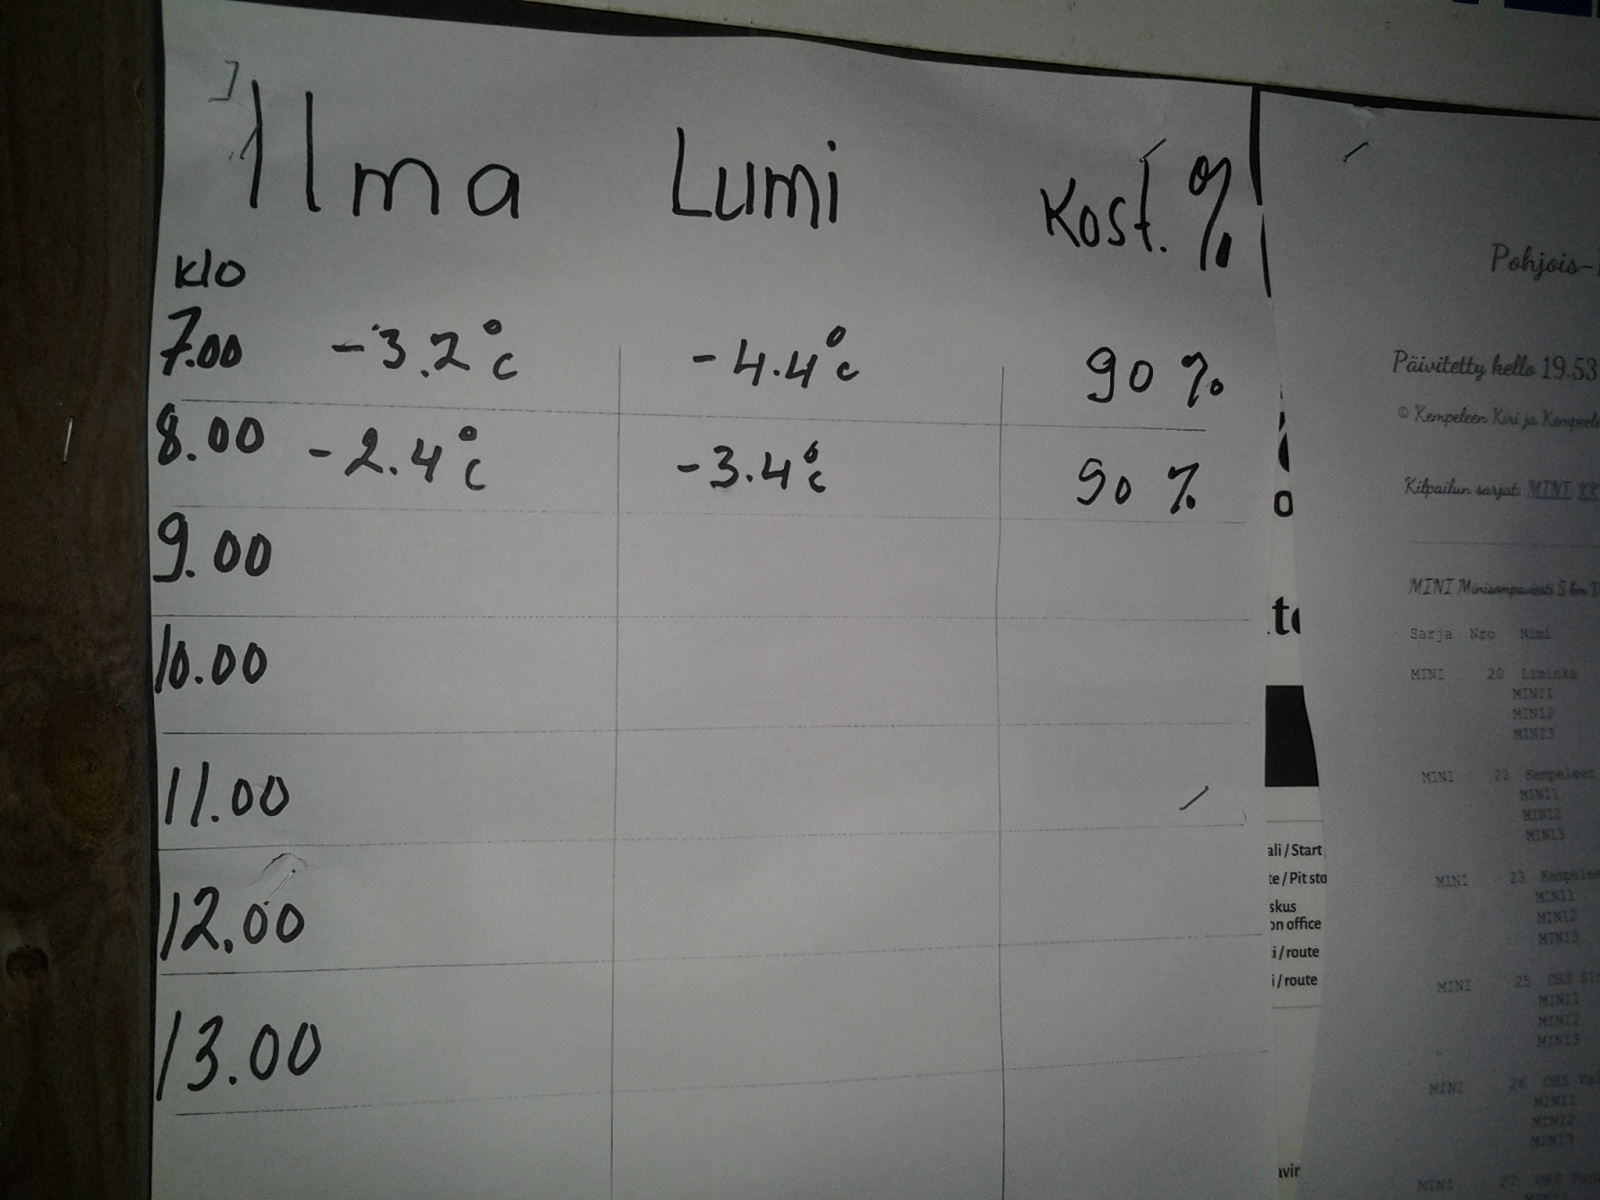 Ilma Lumi Kost. %
klo
7.00 -3.2°c -4.4°c 90 %
8.00 -2.4°c -3.4°c 90 %
9.00
10.00
11.00
12.00
13.00
ali / Start
te / Pit sto
skus
on office
i / route
i / route
Pohjois-
Päivitetty kello 19.53
© Kempeleen Kiri ja
Kilpailun sarjat: MINI
MINI 5 km
Sarja Nro Nimi
MINI 20 Liminka
MINI1
MINI2
MINI3
MINI 22 Kempeleen
MINI1
MINI2
MINI3
MINI 23
MINI1
MINI2
MINI3
MINI 25 OHS
MINI1
MINI2
MINI3
MINI 26 OHS
MINI1
MINI2
MINI3
MINI 27 OHS